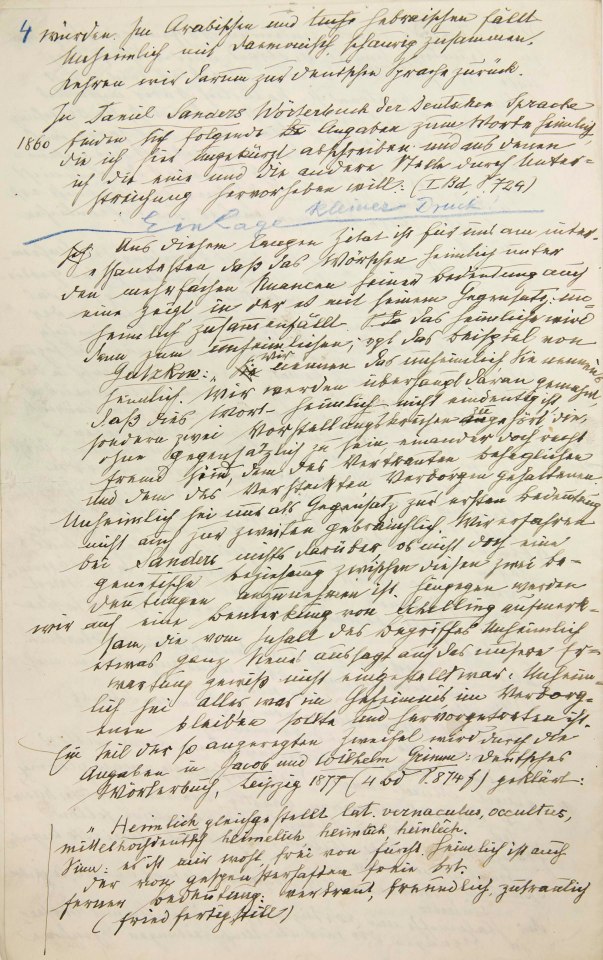 4 würden. Im Arabischen und Hebräischen fällt
Unheimlich mit daemonisch, schaurig zusammen.
Kehren wir darum zur deutschen Sprache zurück.
In Daniel Sanders Wörterbuch der Deutschen Sprache
1860 finden sich folgende Angaben zum Worte heimlich,
die ich hier ungekürzt abschreiben und aus denen
ich die eine und die andere Stelle durch Unter-
streichung hervorheben will: (I Bd, S 729)
Einlage kleiner Druck!
Aus diesem langen Zitat ist für uns am inter-
essantesten daß das Wörtchen heimlich unter
den mehrfachen Nuancen seiner Bedeutung auch
eine zeigt in der es mit seinem Gegensatz: un-
heimlich zusammenfällt. das heimliche wird
dann zum unheimlichen; vgl das Beispiel von
Gutzkow: „wir nennen das unheimlich Sie nennens
heimlich. Wir werden überhaupt daran gemahnt,
daß dies Wort heimlich nicht eindeutig ist
sondern zwei Vorstellungskreisen zugehört die,
ohne gegensätzlich zu sein einander doch recht
fremd sind, dem des Vertrauten behaglichen
und dem des Versteckten Verborgen gehaltenen.
Unheimlich sei nur als Gegensatz zur ersten Bedeutung
nicht auch zur zweiten gebräuchlich. Wir erfahren
bei Sanders nichts darüber ob nicht doch eine
genetische Beziehung zwischen diesen zwei Be-
deutungen anzunehmen ist. Hingegen werden
wir auf eine Bemerkung von Schelling aufmerk-
sam, die vom Inhalt des Begriffes Unheimlich
etwas ganz Neues aussagt auf das unsere Er-
wartung gewiß nicht eingestellt war. Unheim-
lich sei alles was im Geheimnis, im Verborg-
enen bleiben sollte und hervorgetreten ist.
Ein Teil der so angeregten Zweifel wird durch die
Angaben in Jacob und Wilhelm Grimm: Deutsches
Wörterbuch, Leipzig 1877 (4 Bd S. 874 f) geklärt:
„Heimlich gleichgestellt lat. vernaculus, occultus,
mittelhochdeutsch heimelich heimlich, heinlich.
Sinn: es ist mir wohl, frei von Furcht. Heimlich ist auch
der von gespensterhaften freie Ort.
ferner Bedeutung: vertraut, freundlich, zutraulich
(friedfertig still)